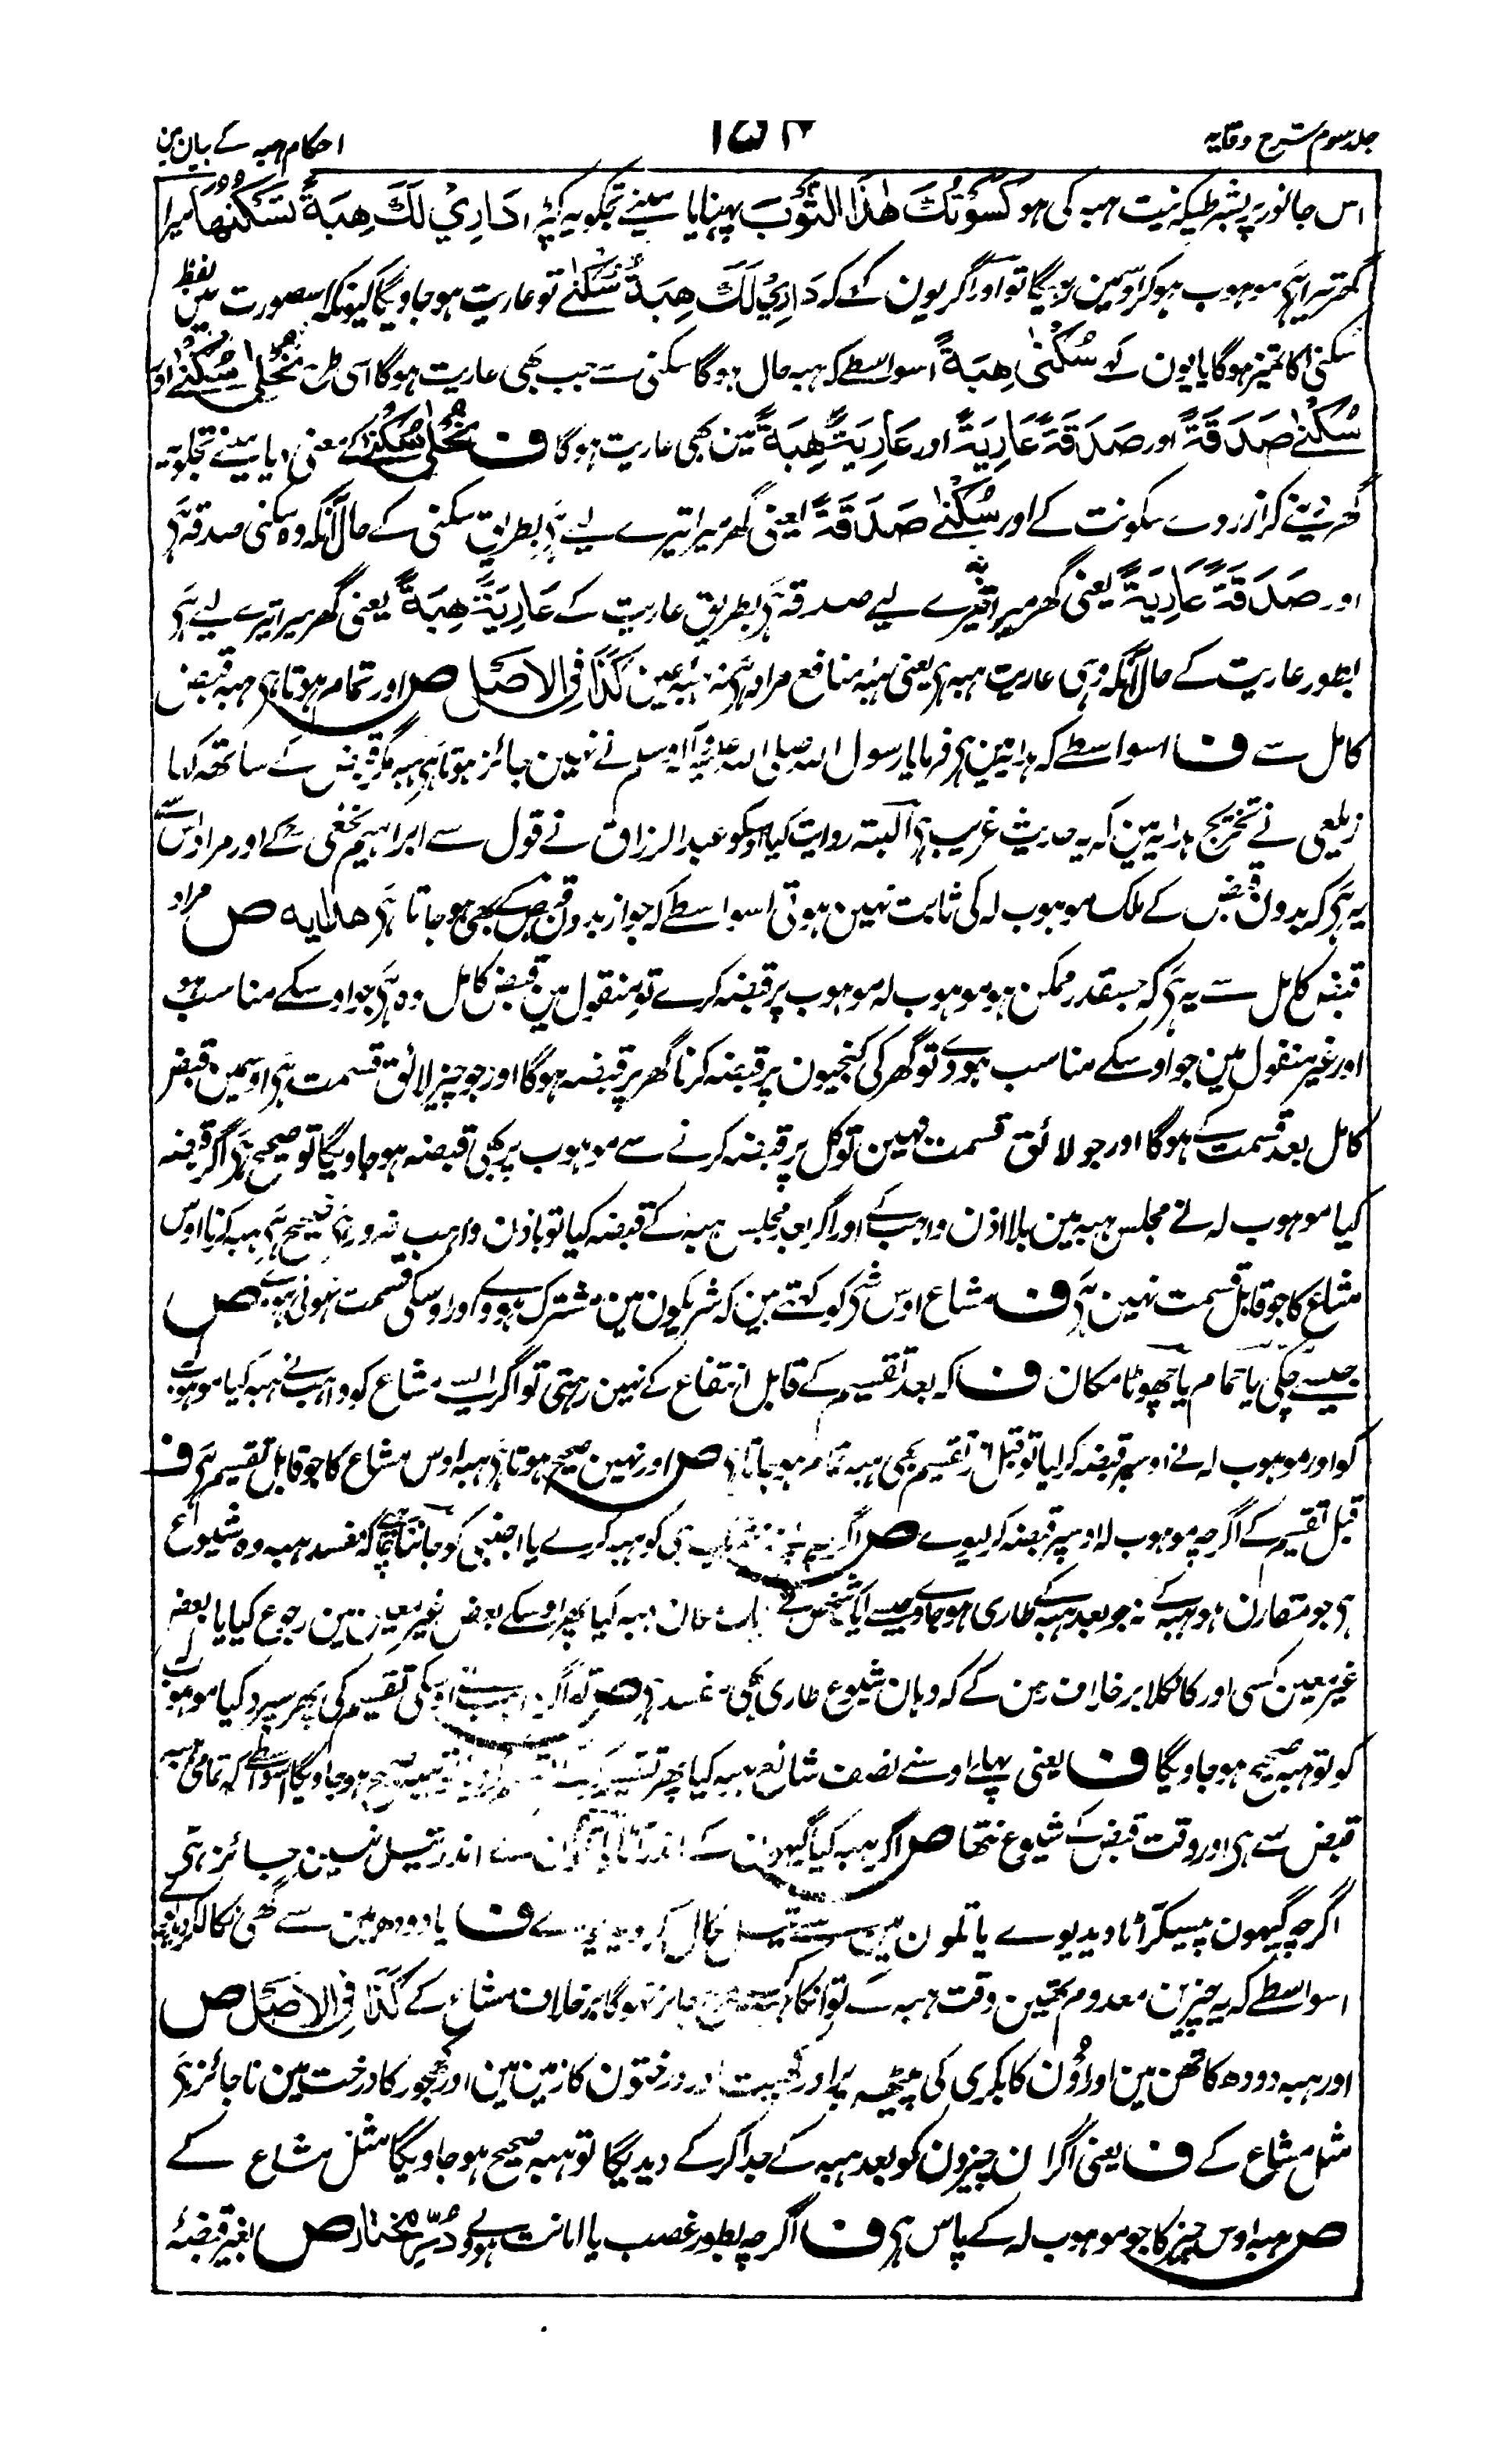 جلد سوم شرح وقایہ
۱۵۲
احکام ہبہ کے بیان مین
اس جانور پر بشرطیکہ نیت ہبہ کی ہو كَسَوْتُكَ هٰذَا الثَّوْبَ پہنایا مینے تجکو یہ کپڑا دَارِيْ لَكَ هِبَةً تَسْكُنُهَا میرا
گھر تیرا ہی موہوب ہوکر اوسمین رہیگا تو اور اگر یون کہے کہ دَارِيْ لَكَ هِبَةً سُكْنٰے تو عاریت ہو جاویگا کیونکہ اسصورت مین لفظ
سکنی کا تمیز ہوگا یا یون کہے سُكْنٰی هِبَةً اسواسطے کہ ہبہ حال ہوگا سکنی سے جب بھی عاریت ہوگا اسی طرح نُحْلٰی سُكْنٰے اور
سُكْنٰے صَدَقَةً اور صَدَقَةً عَارِيَةً اور عَارِيَةً هِبَةً مین بھی عاریت ہوگا ف نُحْلٰی سُكْنٰے کے معنی دیا مینے تجکو یہ
گھر مینے کر ازروے سکونت کے اور سُكْنٰے صَدَقَةً یعنی گھر میرا تیرے لیے ہی بطریق سکنی کے حال آنکہ وہ سکنی صدقہ ہی
اور صَدَقَةً عَارِيَةً یعنی گھر میرا تیرے لیے صدقہ ہی بطریق عاریت کے عَارِيَةً هِبَةً یعنی گھر میرا تیرے لیے ہی
بطور عاریت کے حال آنکہ وہی عاریت ہبہ ہی یعنی ہبہ منافع مراد ہی نہ ہبہ عین كَذَا فِی الاصل ص اور تمام ہوتا ہی ہبہ قبض
کامل سے ف اسواسطے کہ ہدایہ مین ہی فرمایا رسول اللہ صلی اللہ علیہ وآلہ وسلم نے نہین جائز ہوتا ہی ہبہ مگر قبض کے ساتھ کہا
زیلعی نے تخریج ہدایہ مین کہ یہ حدیث غریب ہی البتہ روایت کیا اوسکو عبدالرزاق نے قول سے ابراہیم نخعی کے اور مراد اس سے
یہ ہی کہ بدون قبض کے ملک موہوب لہ کی ثابت نہین ہوتی اسواسطے کہ جواز بدون قبض کے بھی ہو جاتا ہی هدایه ص مراد
قبضہ کامل سے یہ ہی کہ جسقدر ممکن ہو موہوب لہ موہوب پر قبضہ کرے تو منقول مین قبض کامل وہ ہی جو اوسکے مناسب ہو
اور غیر منقول مین جو اوسکے مناسب ہووے تو گھر کی کنجیون پر قبضہ کرنا گھر پر قبضہ ہوگا اور جو چیز لائق قسمت ہی اوسمین قبض
کامل بعد قسمت کے ہوگا اور جو لائق قسمت نہین تو کل پر قبضہ کرنے سے موہوب پر بھی قبضہ ہو جاویگا تو صحیح ہی اگر قبضہ
کیا موہوب لہ نے مجلس ہبہ مین بلا اذن واہب کے اور اگر بعد مجلس ہبہ کے قبضہ کیا تو باذن واہب ضرور ہی صحیح ہی ہبہ کرنا اوس
مشاع کا جو قابل قسمت نہین ہی ف مشاع اوس شی کو کہتے ہین کہ شریکون مین مشترک ہووے اور اوسکی قسمت نہوئی ہووے ص
جیسے چکی یا حمام یا چھوٹا مکان ف کہ بعد تقسیم کے قابل انتفاع کے نہین رہتی تو اگر ایسے مشاع کو واہب نے ہبہ کیا موہوب لہ
کو اور موہوب لہ نے اوسپر قبضہ کر لیا تو قبل از تقسیم بھی ہبہ تمام ہو جاتا ہی ص اور نہین صحیح ہوتا ہی ہبہ اوس مشاع کا جو قابل تقسیم ہی ف
قبل تقسیم کے اگرچہ موہوب لہ اوسپر قبضہ کر لیوے ص اگرچہ اپنے شریک ہی کو ہبہ کرے یا اجنبی کو جاننا چاہیے کہ مفسد ہبہ وہ شیوع
ہی جو مقارن ہو ہبہ کے نہ جو بعد ہبہ کے طاری ہو جاوے جیسے ایک شخص نے ہبہ کیا پھر اوسکے بعض غیر معین مین رجوع کیا یا بعض
غیر معین کسی اور کا نکلا برخلاف رہن کے کہ وہان شیوع طاری بھی مفسد ہی ص تو اگر واہب نے اوسکی تقسیم کی پھر سپرد کیا موہوب لہ
کو تو ہبہ صحیح ہو جاویگا ف یعنی پہلے اوسنے نصف شائع ہبہ کیا پھر تقسیم کرکے ہبہ صحیح ہو جاویگا اسواسطے کہ تمامی ہبہ
قبض سے ہی اور وقت قبض کے شیوع نتھا ص اگر ہبہ کیا گیہون کے اندر آٹا یا تلون کے اندر تیل نہین جائز ہی
اگرچہ گیہون پیسکر آٹا دیدیوے یا تلون مین سے تیل نکال کر دیدیوے ف یا دودھ مین سے گھی نکالکر دیدے
اسواسطے کہ یہ چیزین معدوم تھین وقت ہبہ کے تو انکا ہبہ جائز نہوگا برخلاف مشاع کے كَذَا فِی الاصل ص
اور ہبہ دودھ کا تھن مین اور اُون کا بکری کی پیٹھ پر اور کھیت اور درختون کا زمین مین اور کھجور کا درخت مین ناجائز ہی
مثل مشاع کے ف یعنی اگر ان چیزون کو بعد ہبہ کے جدا کرکے دیدیگا تو ہبہ صحیح ہو جاویگا مثل مشاع کے
ص ہبہ اوس چیز کا جو موہوب لہ کے پاس ہی ف اگرچہ بطور غصب یا امانت ہووے دُرِّ مختار ص بغیر قبضۂ